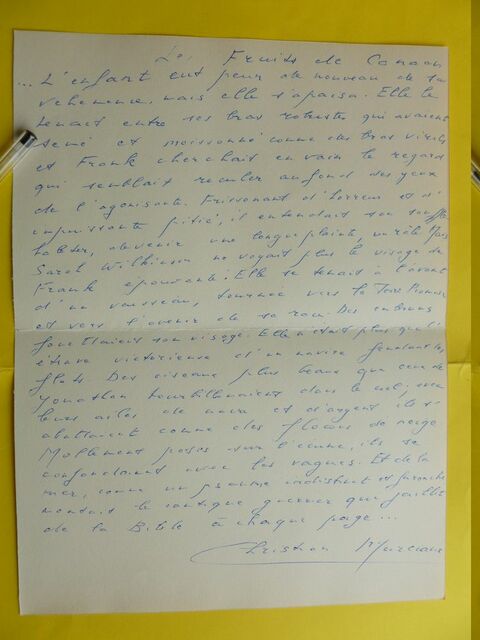 Les Fruits de Canaan
... L'enfant eut peur de nouveau de sa
véhémence, mais elle s'apaisa. Elle le
tenait entre ses bras robustes qui avaient
semé et moissonné comme des bras virils
et Frank cherchait en vain le regard
qui semblait reculer au fond des yeux
de l'agonisante. Frissonant d'horreur et d'
impuissante pitié, il entendait son souffle
haleter, devenir une longue plainte, un râle. Mais
Sarah Wilkinson ne voyait plus le visage de
Frank épouvanté. Elle se tenait à l'avant
d'un vaisseau, tournée vers la Terre Promise
et vers l'avenir de sa race. Des embruns
fouettaient son visage. Elle n'était plus que l'
étrave victorieuse d'un navire fendant les
flots. Des oiseaux plus beaux que ceux de
Jonathan tourbillonnaient dans le ciel, avec
leurs ailes de nacre et d'argent ils s'
abattaient comme des flocons de neige
Mollement posés sur l'écume, ils se
confondaient avec les vagues. Et de la
mer, comme un psaume indistinct et farouche
montait le cantique guerrier qui jaillit
de la Bible à chaque page...
Christian Murciaux